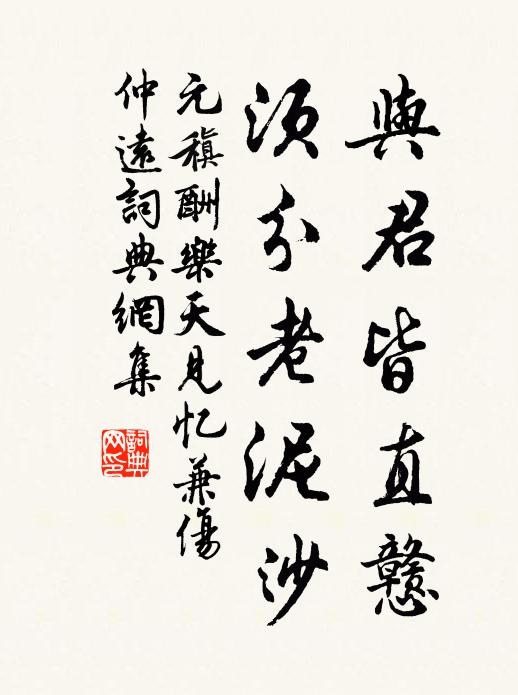 與君皆直戇
須分老泥沙
元稹酬樂天見忆兼傷
仲遠詞典網集
詞典網印